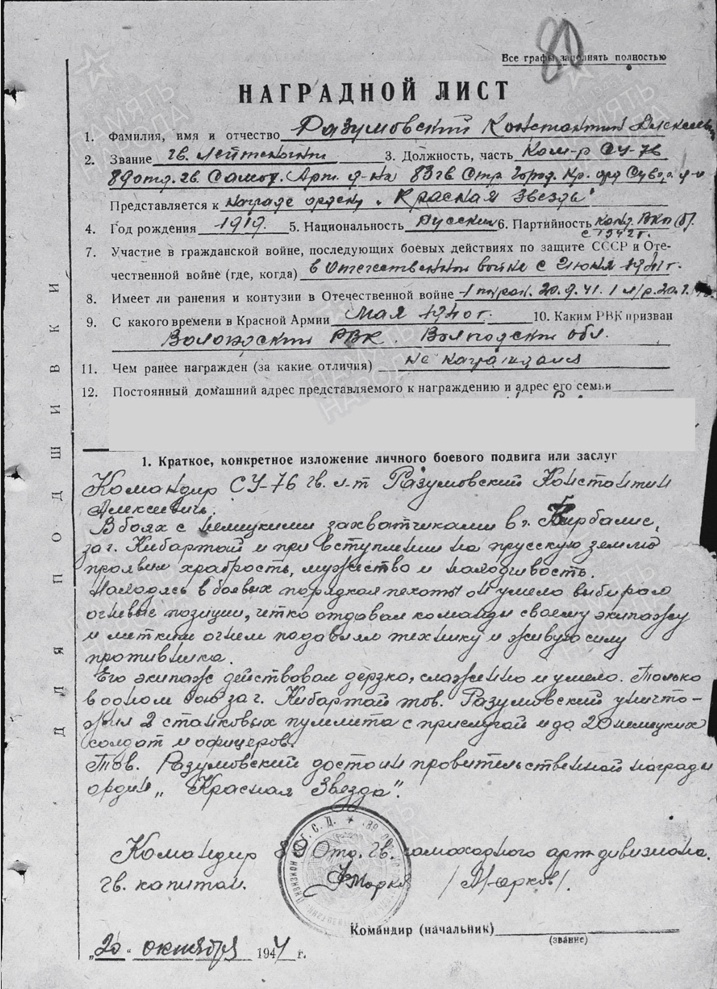 80
Все графы заполнять полностью
НАГРАДНОЙ ЛИСТ
1. Фамилия, имя и отчество Разумовский Константин Алексеев
2. Звание гв. лейтенант 3. Должность, часть Ком-р СУ-76
89 отд. гв. Самох. Арт. д-на 83 гв Стр. Город. Кр. орд Сувор. д-и
Представляется к награде орден „Красная Звезда"
4. Год рождения 1919. 5. Национальность Русский 6. Партийность канд. ВКП(б).
с 1942 г.
7. Участие в гражданской войне, последующих боевых действиях по защите СССР и Оте-
чественной войне (где, когда) в Отечественной войне с июня 1941 г.
8. Имеет ли ранения и контузии в Отечественной войне 20.9.41.
9. С какого времени в Красной Армии мая 1940 г. 10. Каким РВК призван
Вологодским РВК. Вологодской обл.
11. Чем ранее награжден (за какие отличия) не награждался
12. Постоянный домашний адрес представляемого к награждению и адрес его семьи
1. Краткое, конкретное изложение личного боевого подвига или заслуг
Командир СУ-76 гв. л-т Разумовский Константин
Алексеевич.
В боях с немецкими захватчиками в г. Вирбалис,
за г. Кибартай и при вступлении на прусскую землю
проявил храбрость, мужество и находчивость.
Находясь в боевых порядках пехоты он умело выбирал
огневые позиции, четко отдавал команды своему экипажу
и метким огнем подавлял технику и живую силу
противника.
Его экипаж действовал дерзко, слаженно и умело. Только
в одном бою за г. Кибартай тов. Разумовский уничто-
жил 2 станковых пулмета с прислугой и до 20 немецких
солдат и офицеров.
Тов. Разумовский достоин провительственной награды
орден „Красная Звезда".
Командир 89 Отд. гв. самоходного арт. дивизиона.
гв. капитан. /Марков/.
Командир (начальник)
(звание)
„20" октября 1944 г.
ДЛЯ ПОДШИВКИ
ПАМЯТЬ НАРОДА